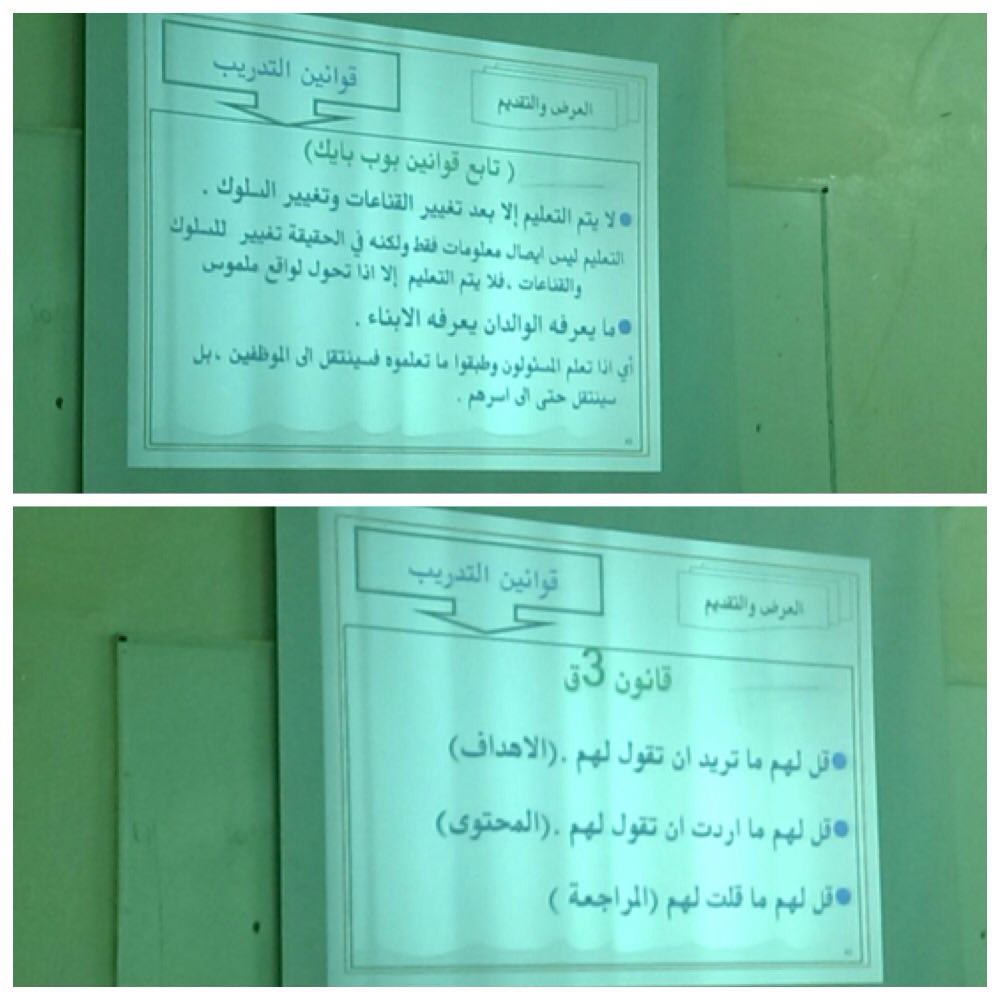 قوانين التدريب
العرض والتقديم
( تابع قوانين بوب بايك)
لا يتم التعليم إلا بعد تغيير القناعات وتغيير السلوك .
التعليم ليس ايصال معلومات فقط ولكنه في الحقيقة تغيير للسلوك
والقناعات ، فلا يتم التعليم إلا اذا تحول لواقع ملموس
ما يعرفه الوالدان يعرفه الابناء .
أي اذا تعلم المسئولون وطبقوا ما تعلموه فسينتقل الى الموظفين ، بل
سينتقل حتى الى اسرهم .
قوانين التدريب
العرض والتقديم
قانون 3ق
قل لهم ما تريد ان تقول لهم .(الاهداف)
قل لهم ما اردت ان تقول لهم .(المحتوى)
قل لهم ما قلت لهم (المراجعة )